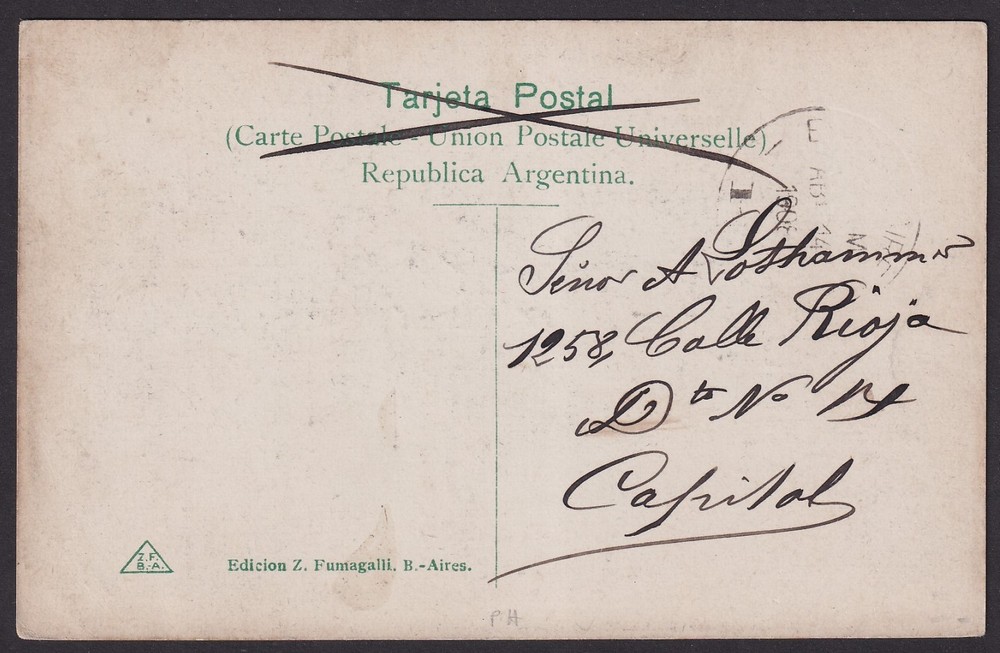 Tarjeta Postal
(Carte Postale - Union Postale Universelle)
Republica Argentina.
E
AB 14
M
190
Señor A Loshammer
1258, Calle Rioja
Dto No 14
Capital
Z.F.
B.-A.
Edicion Z. Fumagalli. B.-Aires.
PH